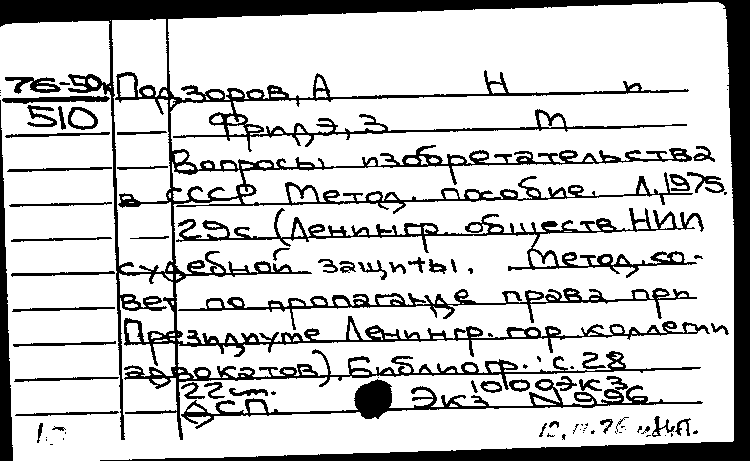 76-50к Подзоров, А Н п
510 Фридэ, З М
Вопросы изобретательства
в СССР. Метод. пособие. Л, 1975.
29с (Ленингр. обществ. НИИ
судебной защиты. Метод. со-
вет по пропаганде права при
Президиуме Ленингр. гор. коллегии
адвокатов). Библиогр.: с. 28
22 см. 1000экз
ДСП. Экз N 996.
12.